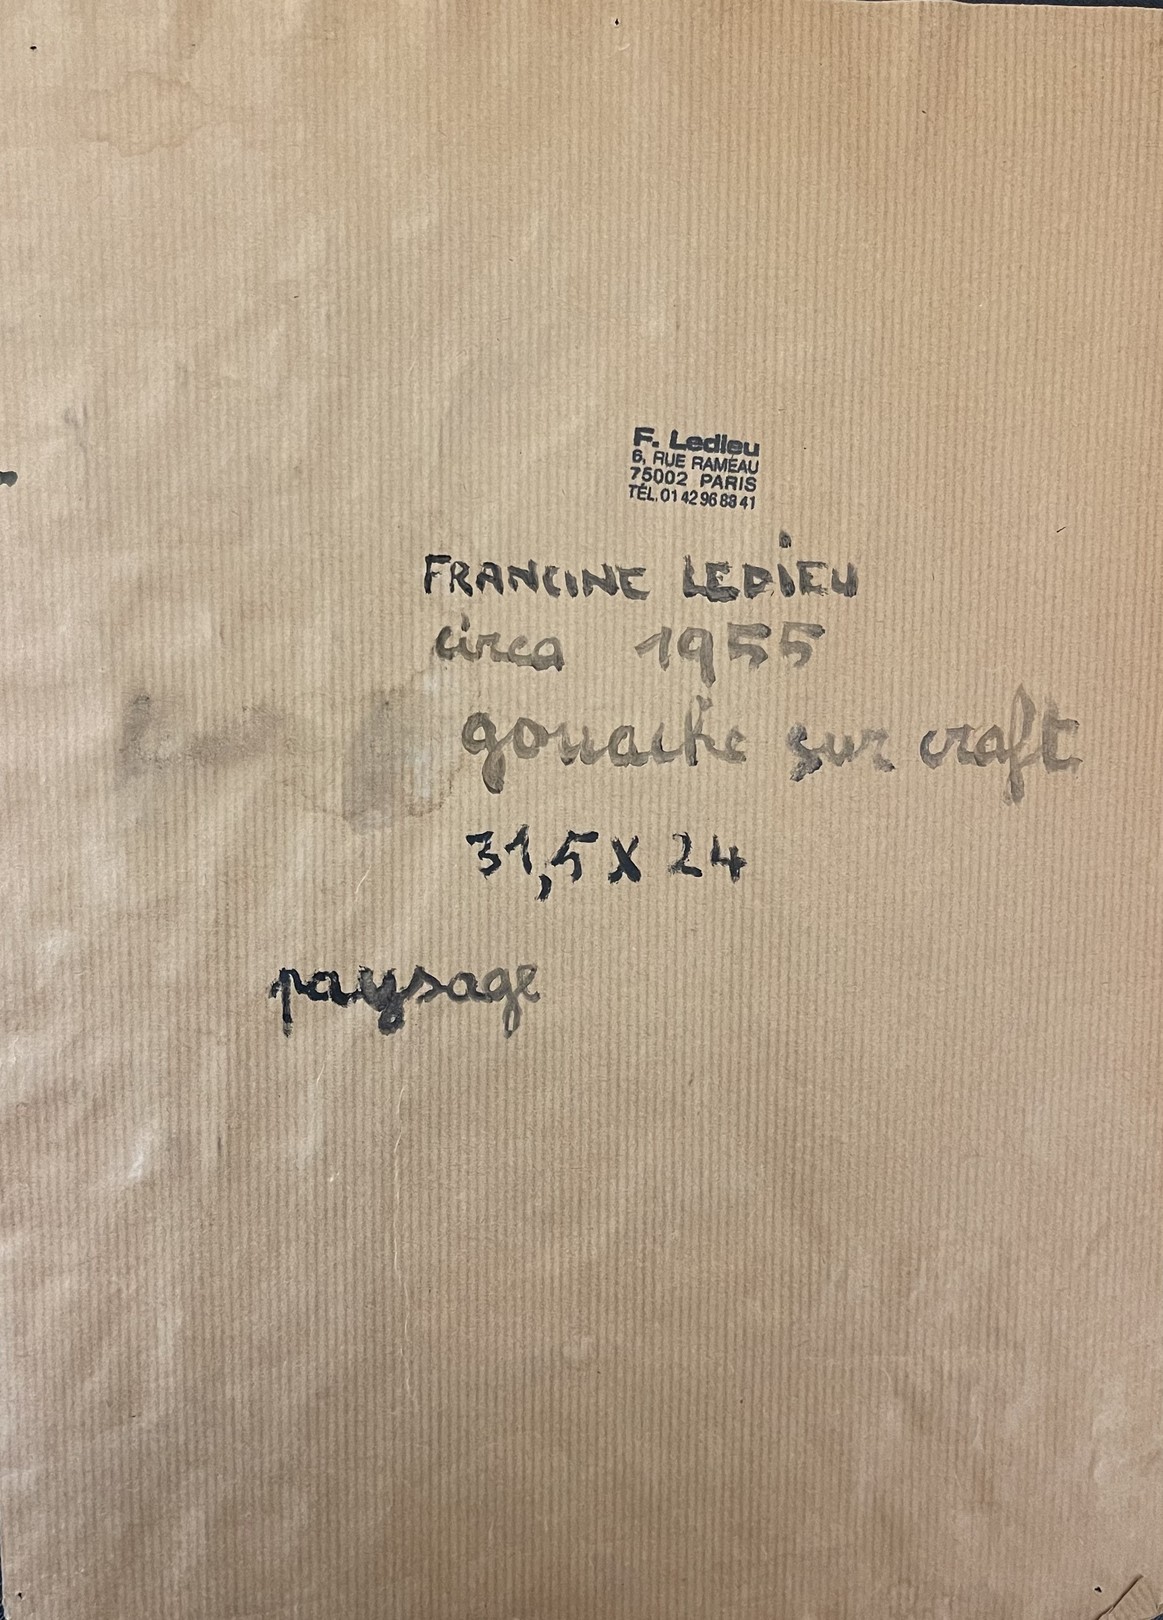 F. Ledieu
6, RUE RAMEAU
75002 PARIS
TÉL. 01 42 96 88 41
FRANCINE LEDIEU
circa 1955
gouache sur craft
31,5 X 24
paysage